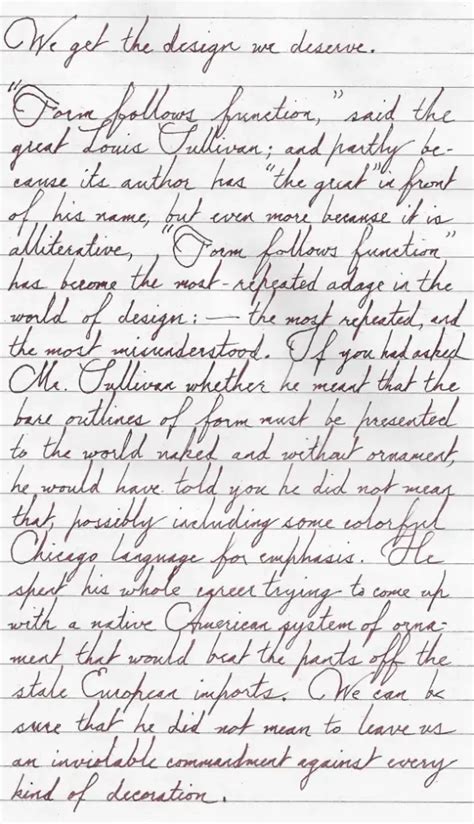 We get the design we deserve.
"Form follows function," said the
great Louis Sullivan; and partly be-
cause its author has "the great" in front
of his name, but even more because it is
alliterative, "Form follows function"
has become the most-repeated adage in the
world of design: — the most repeated, and
the most misunderstood. If you had asked
Mr. Sullivan whether he meant that the
bare outlines of form must be presented
to the world naked and without ornament,
he would have told you he did not mean
that, possibly including some colorful
Chicago language for emphasis. He
spent his whole career trying to come up
with a native American system of orna-
ment that would beat the pants off the
stale European imports. We can be
sure that he did not mean to leave us
an inviolable commandment against every
kind of decoration.